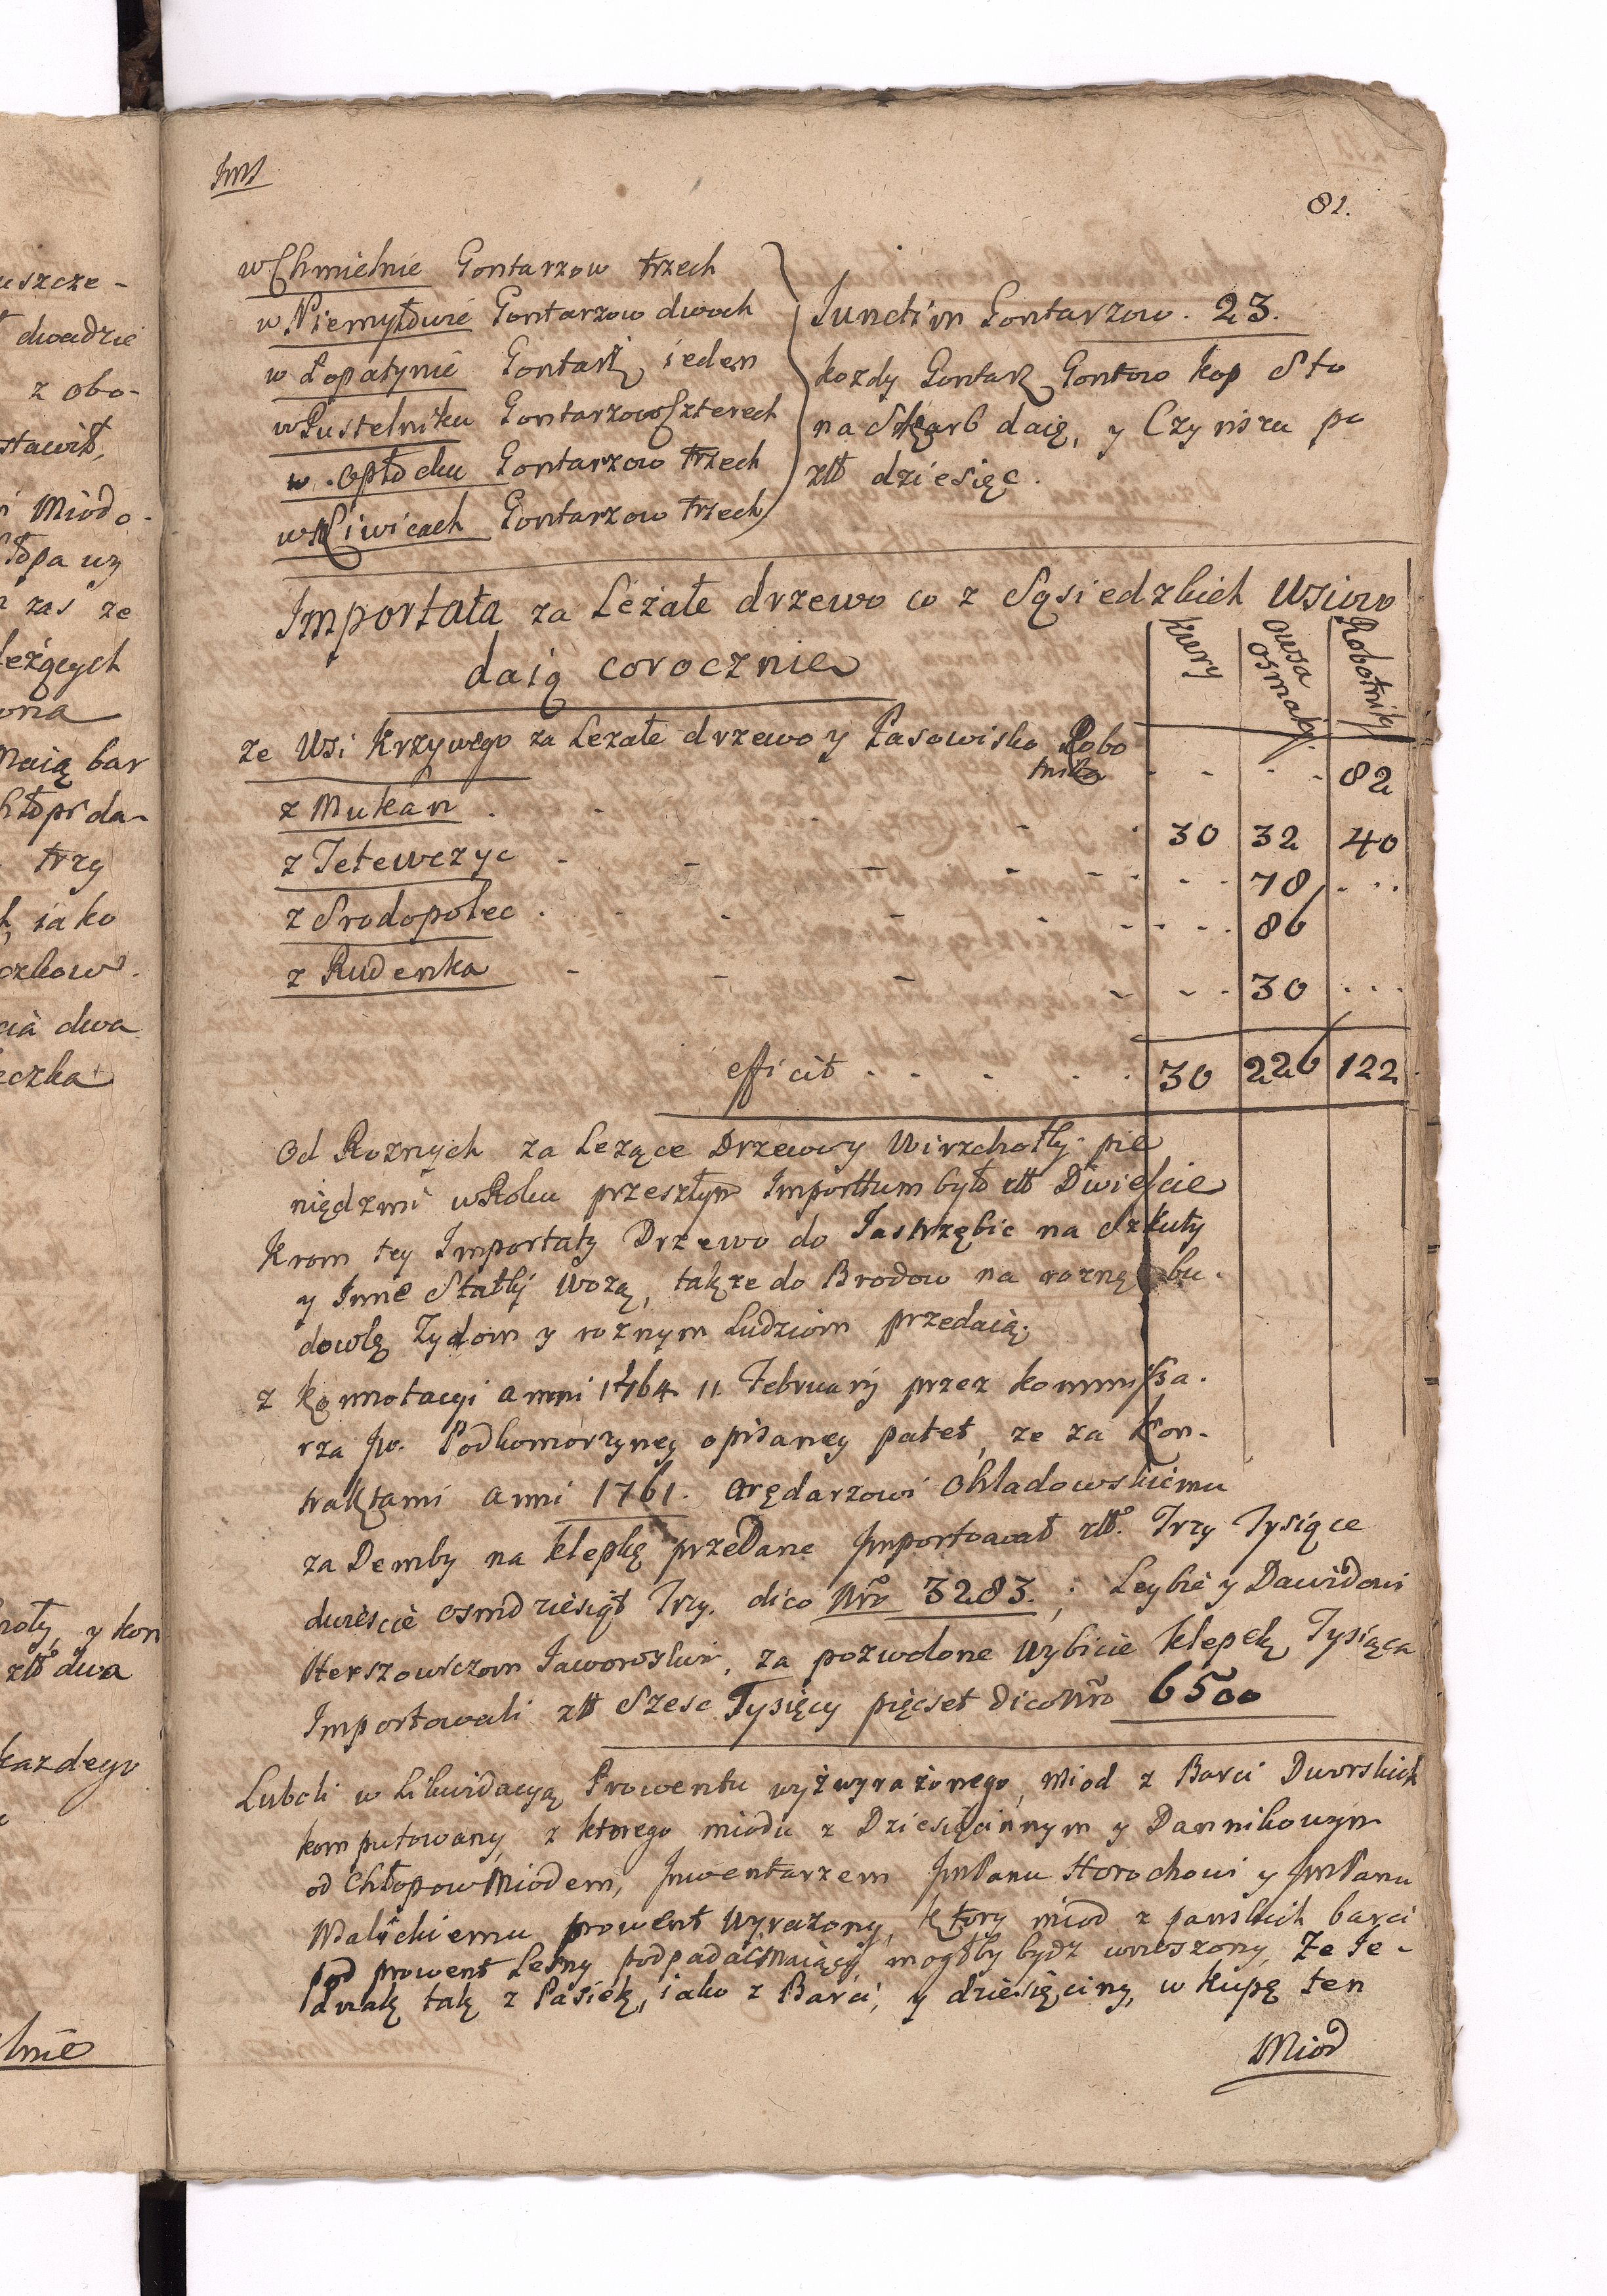 81.
w Chmielnie Gontarzow trzech
w Niemyłowie Gontarzow dwoch
w Łopatynie Gontarz ieden
w Pustelniku Gontarzow Czterech
w Opłocku Gontarzow trzech
w Kiwicach Gontarzow trzech
Junctim Gontarzow. 23.
kozdy Gontarz Gontow kop Sto
na Skarb daią, y Czynszu po
złł dziesięc.
Importata za Leżałe drzewo co z Sąsiedzkich Wsiow
daią corocznie
kury
owsa osmaki
Robotniki
ze Wsi Krzywego za Lezałe drzewo y Pasowisko Robo
tnika - - . - 82
z Mukan . - - - . 30 32 40
z Tetewczyc - - - - - - - - 78 . . .
z Srodopolec . - - - - - - - . 86
z Rudenka - - - - - - 30 . . .
efficit . . . . . 30 226 122
Od Roznych za Lezące Drzewo y Wirzchołły pie
niędzmi w Roku przeszłym Importtum było złł Dwieście
Krom tey Importaty Drzewo do Jastrzębic na Szkuty
y Inne Statki Wozą, także do Brodow na rozną bu.
dowlę Zydom y roznym Ludziom przedaią.
z konnotacyi anni 1764. 11. February przez kommissa.
rza Jw. Podkomorzyney opisaney patet, ze za kon.
traktami anni 1761. arędarzowi Ohladowskiemu
za Demby na klepkę przedane Importował złł. Trzy Tysiące
dwieście osmdziesiąt Trzy. dico Nro 3283. ; Leybie y Dawidowi
Herszowiczom Jaworoskim, za pozwolone Wybicie klepek Tysiąca
Importowali złł Szesc Tysięcy pięcset Dico Nro 6500
Luboli w Likwidacyą Prowentu wyżwyrażonego, Miod z Barci Dworskich
komputowany, z ktorego miodu z Dziesięcinnym y Dannikowym
od Chłopow Miodem, Jnwentarzem JmPanu Horochowi y JmPanu
Malickiemu prowent Wyrazony, ktory miod z panskich barci
pod prowent Lesny podpadać maiący mogłby bydz wnieszony, Ze Je-
dnak tak z Pasiek, iako z Barci, y dziesięciny, w kupę ten
Miod